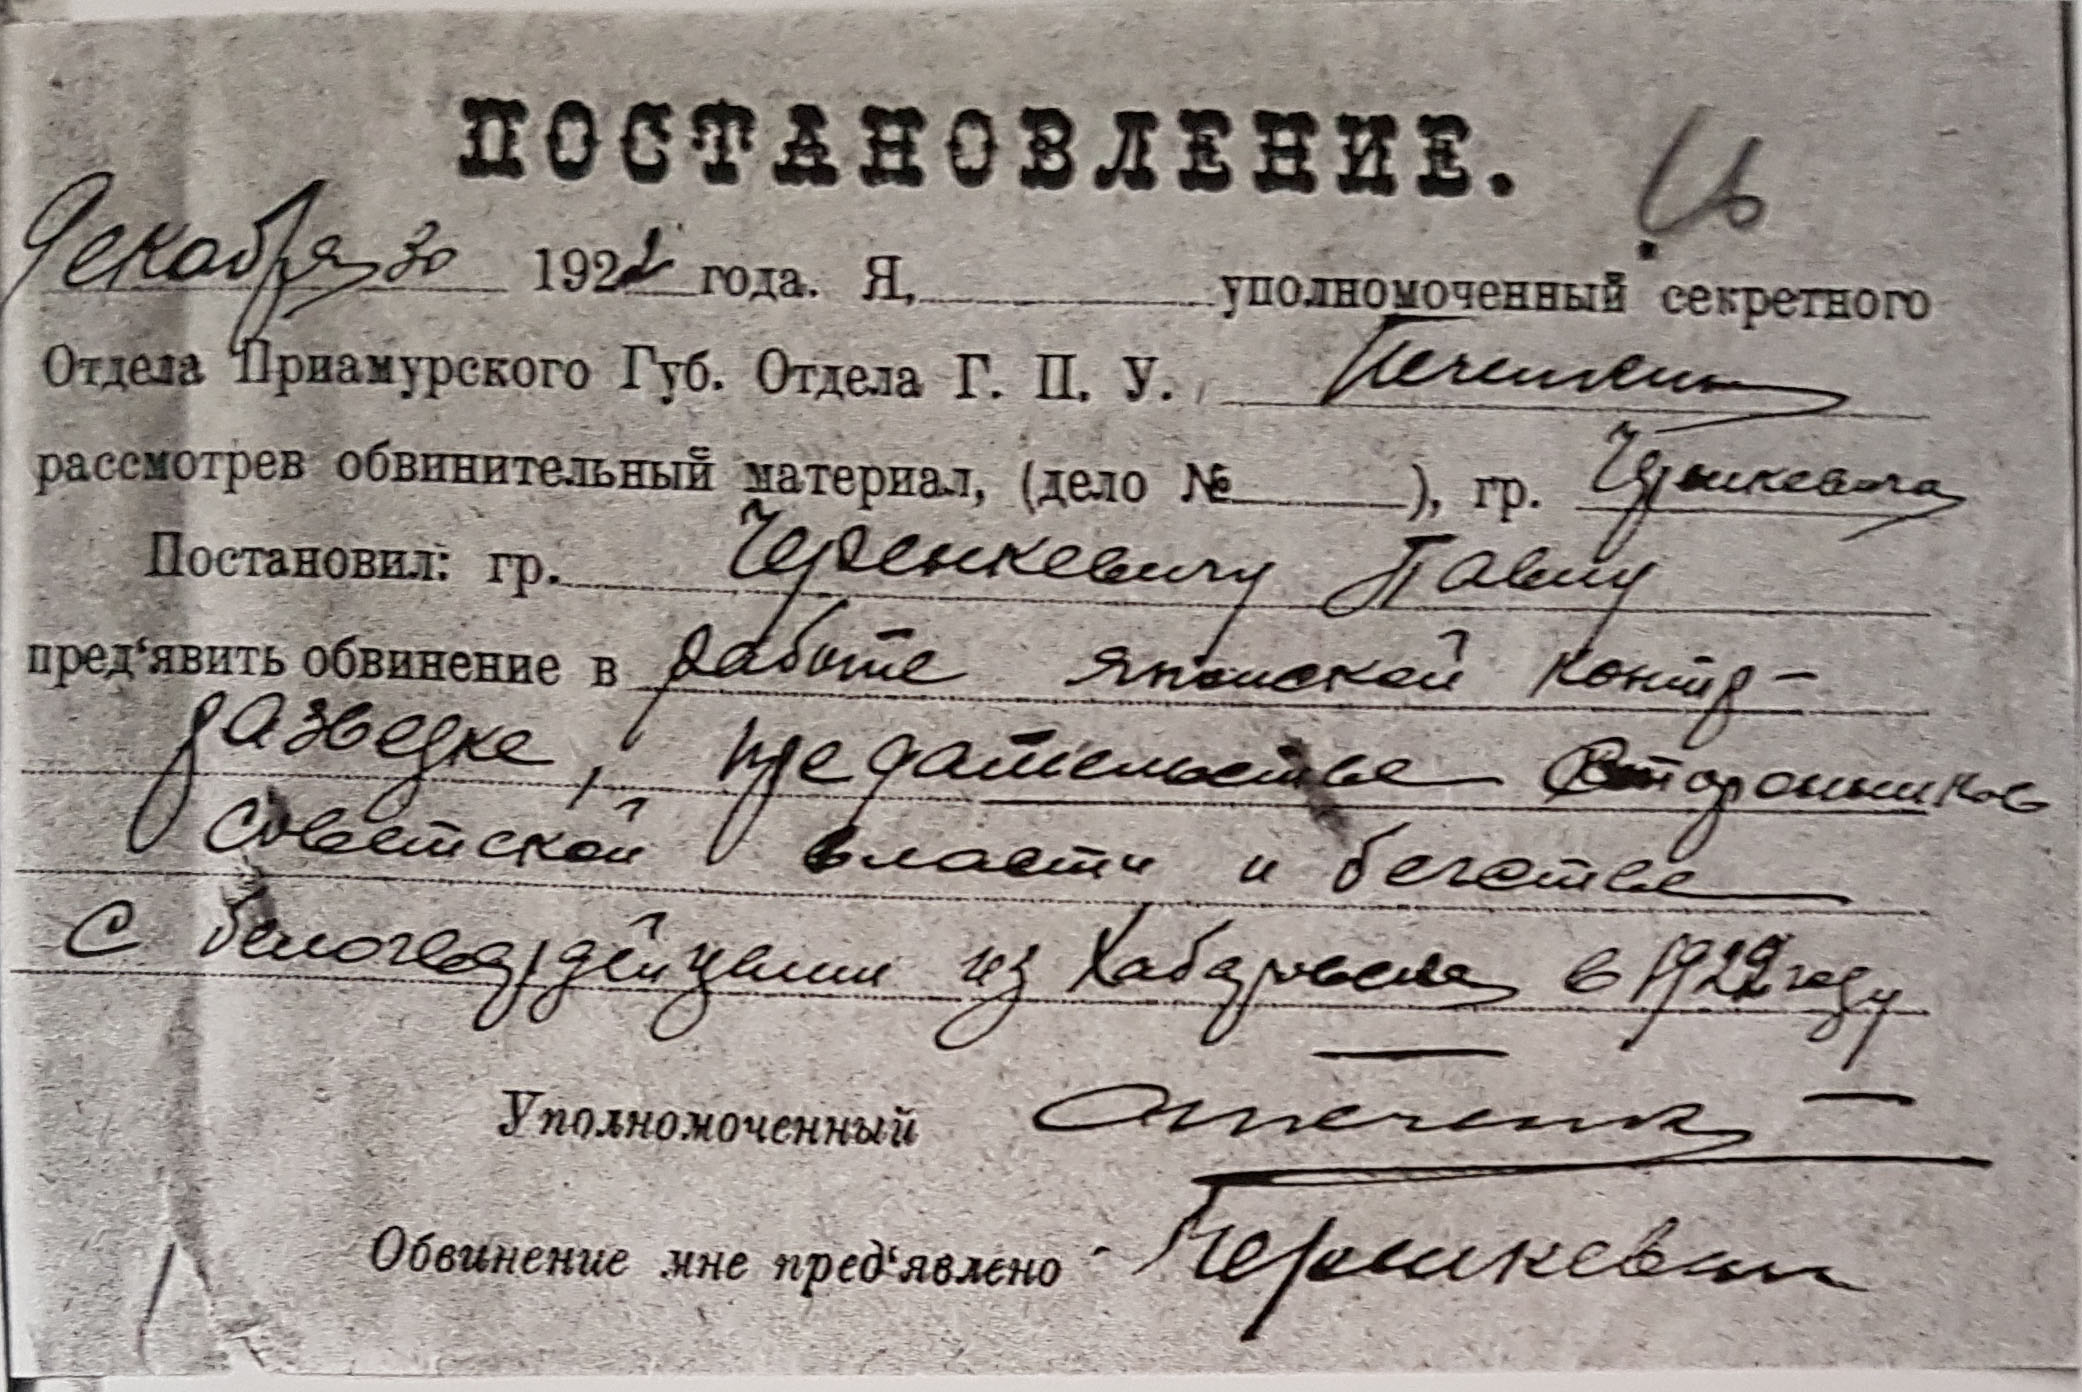 ПОСТАНОВЛЕНИЕ.
Декабря 30 1922 года. Я, уполномоченный секретного
Отдела Приамурского Губ. Отдела Г. П. У.
рассмотрев обвинительный материал, (дело № ), гр. Черенкевича
Постановил: гр. Черенкевичу Павлу
пред‘явить обвинение в работе японской контр-
разведке, предательстве сторонников
советской власти и бегстве
с белогвардейцами из Хабаровска в 1922 году
Уполномоченный
Обвинение мне пред‘явлено Черенкевич